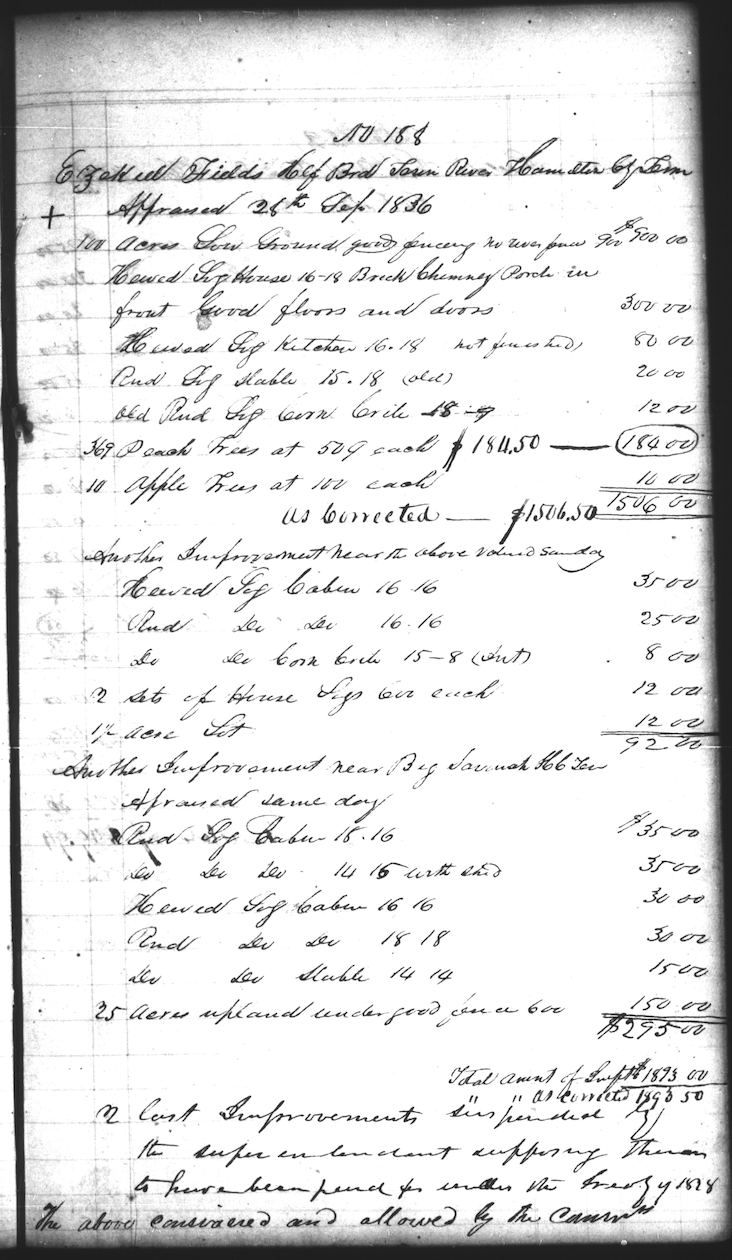 No 188
Ezekiel Fields Half Brd Tenn River Hamilton Cy Tenn
+ Appraised 28th Sep 1836
100 Acres Low Ground good fencing no river fence 900 $900 00
Hewed Log House 16-18 Brick Chimney Porch in
front Good floors and doors 300 00
Hewed Log Kitchen 16.18 not finished 80 00
Rnd Log Stable 15.18 (old) 20 00
Old Rnd Log Corn Crib 18 - 9 12 00
369 Peach Trees at 50¢ each $184.50 — 184 00
10 Apple Trees at 100 each 10 00
As Corrected — $1506.50 1506 00
Another Improvement near the above valued same day
Hewed Log Cabin 16 16 35 00
Rnd Do Do 16.16 25 00
Do Do Corn Crib 15-8 8 00
2 Sets of House Logs 600 each 12 00
1½ acre Lot 12 00
92 00
Another Improvement near Big Savanah Ten
Apraised same day
Rnd Log Cabin 18.16 $35 00
Do Do Do 14 16 with shed 35 00
Hewed Log Cabin 16 16 30 00
Rnd Do Do 18 18 30 00
Do Do Stable 14 14 15 00
25 Acres upland under good fence 600 150 00
$295 00
Total Amnt of Impts $1893 00
" " As Corrected 1893 50
2 last Improvements suspended by
the superintendant supposing them
to have been paid for under the Treaty of 1828
The above canvassed and allowed by the Commrs